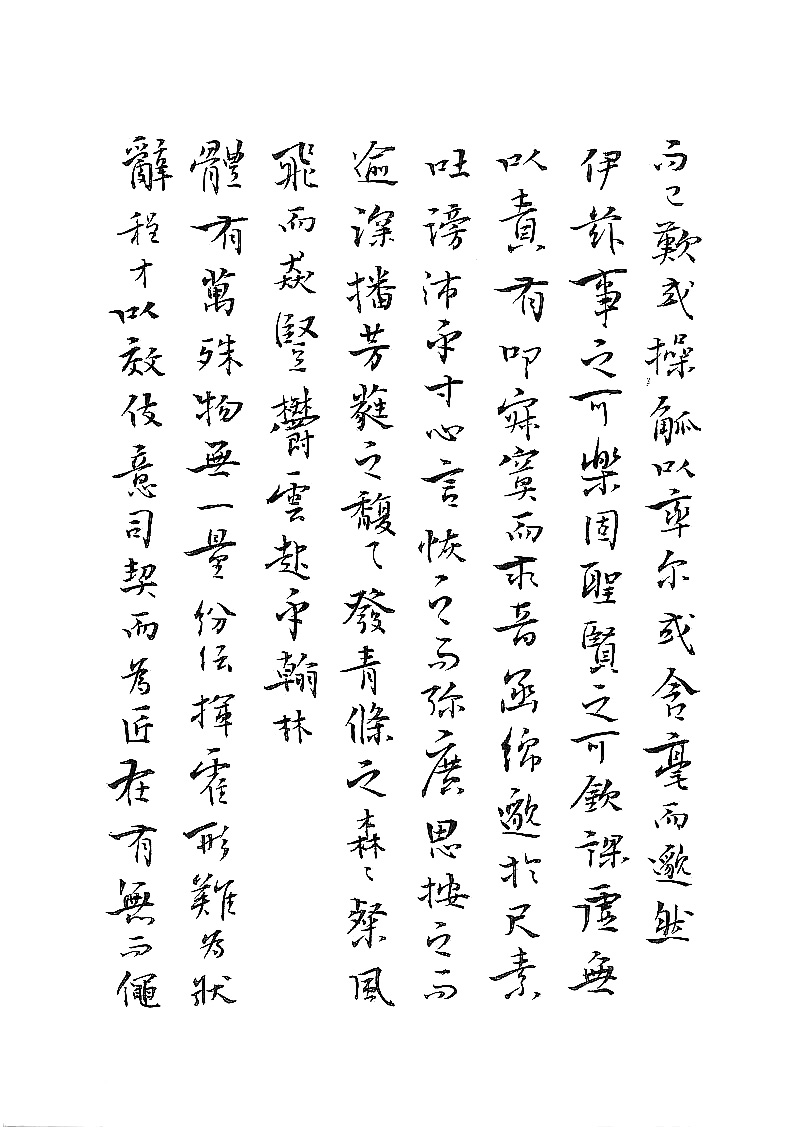 而已歟或操觚以率尔或含毫而邈然
伊茲事之可樂固聖賢之可欽課虛無
以責有叩寂寞而求音函綿邈於尺素
吐滂沛乎寸心言恢之而弥廣思按之而
逾深播芳蕤之馥〻發青條之森〻粲風
飛而猋豎欝雲起乎翰林
體有萬殊物無一量紛紜揮霍形難為狀
辭程才以效伎意司契而為匠在有無而僶